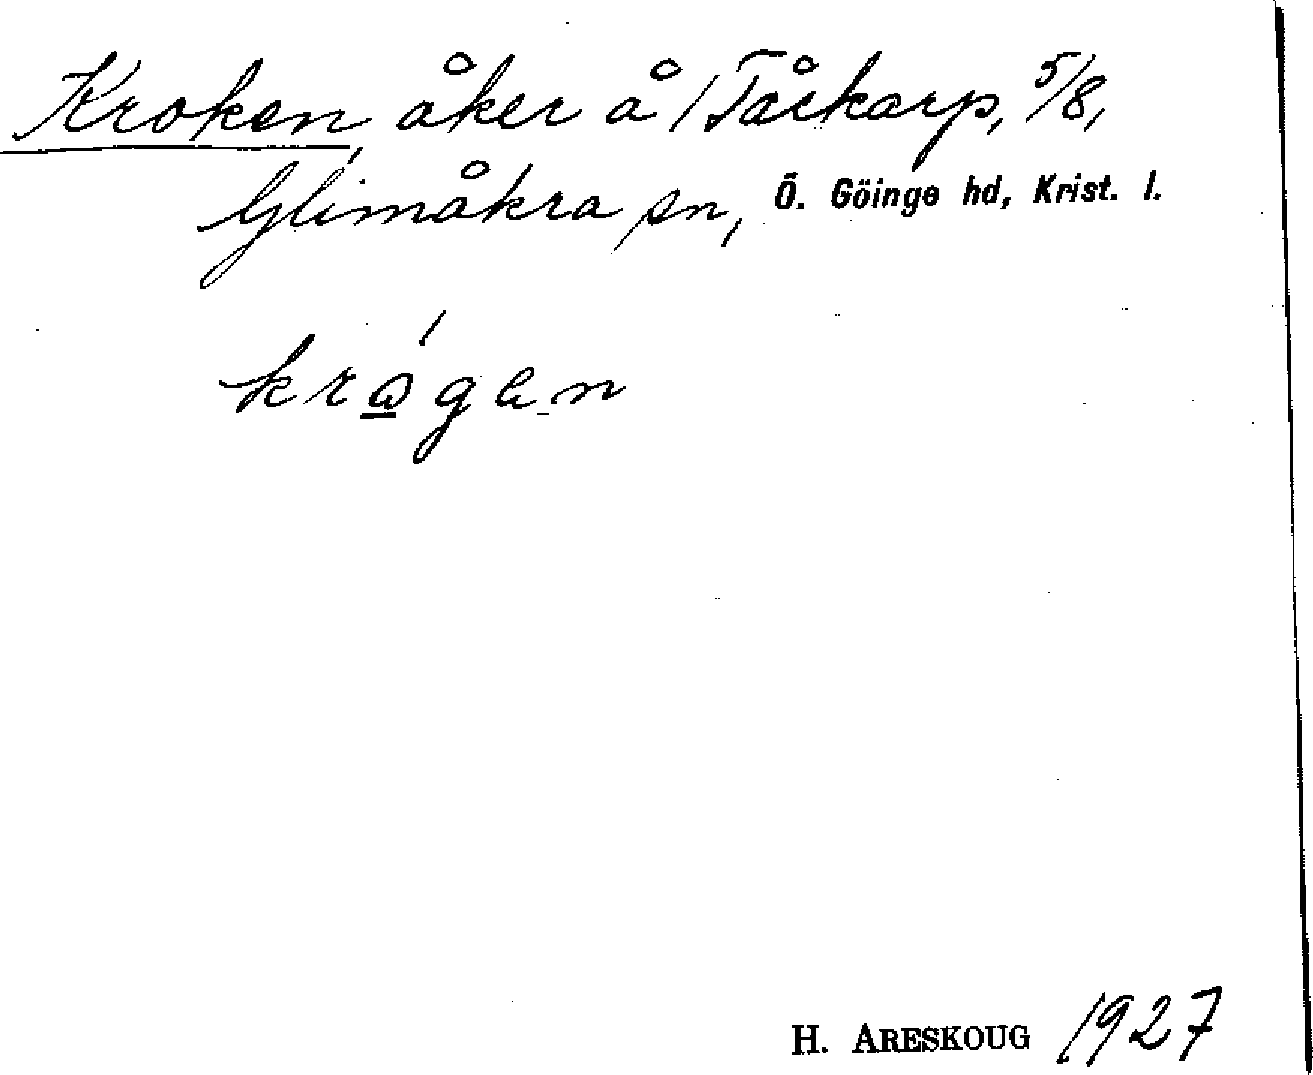 Kroken, åker å /Tåkarp, 5/8,
Glimåkra sn, Ö. Göinge hd, Krist. l.
kro̲gen
H. ARESKOUG 1927